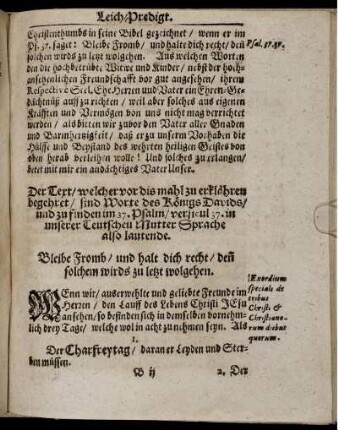 Leich/Predigt.
Christenthumbs in seine Bibel gezeichnet / wenn er im
Ps. 37. saget: Bleibe Fromb / und halte dich recht / deñ
Psal. 37. 37.
solchen wirds zu letzt wolgehen. Aus welchen Worten
den die hochbetrübte Witwe und Kinder / nebst der hoch-
ansehenlichen Freundschafft vor gut angesehen / ihrem
Respectivè Seel. EheHerren und Vater ein Ehren-Ge-
dächtnüß auffzurichten / weil aber solches aus eigenen
Kräfften und Vermögen von uns nicht mag verrichtet
werden / als bitten wir zuvor den Vater aller Gnaden
und Barmhertzigkeit / daß er zu unserm Vorhaben die
Hülffe und Beystand des wehrten heiligen Geistes von
oben herab verleihen wolle! Und solches zu erlangen /
betet mit mir ein andächtiges Vater Unser.
Der Text / welcher vor dis mahl zu erklähren
begehret / sind Worte des Königs Davids /
und zu finden im 37. Psalm / versicul 37. in
unserer Teutschen Mutter Sprache
also lautende.
Bleibe Fromb / und halt dich recht / deñ
solchem wirds zu letzt wolgehen.
WEnn wir / auserwehlte und geliebte Freunde im
Herren / den Lauff des Lebens Christi JEsu
ansehen / so befinden sich in demselben vornehm-
lich drey Tage / welche wol in acht zu nehmen seyn. Als
Exordium
speciale de
tribus
Christi &
Christiano-
rum diebus
quorum.
1.
Der Charfreytag / daran er Leyden und Ster-
ben müssen.
B ij
2. Der